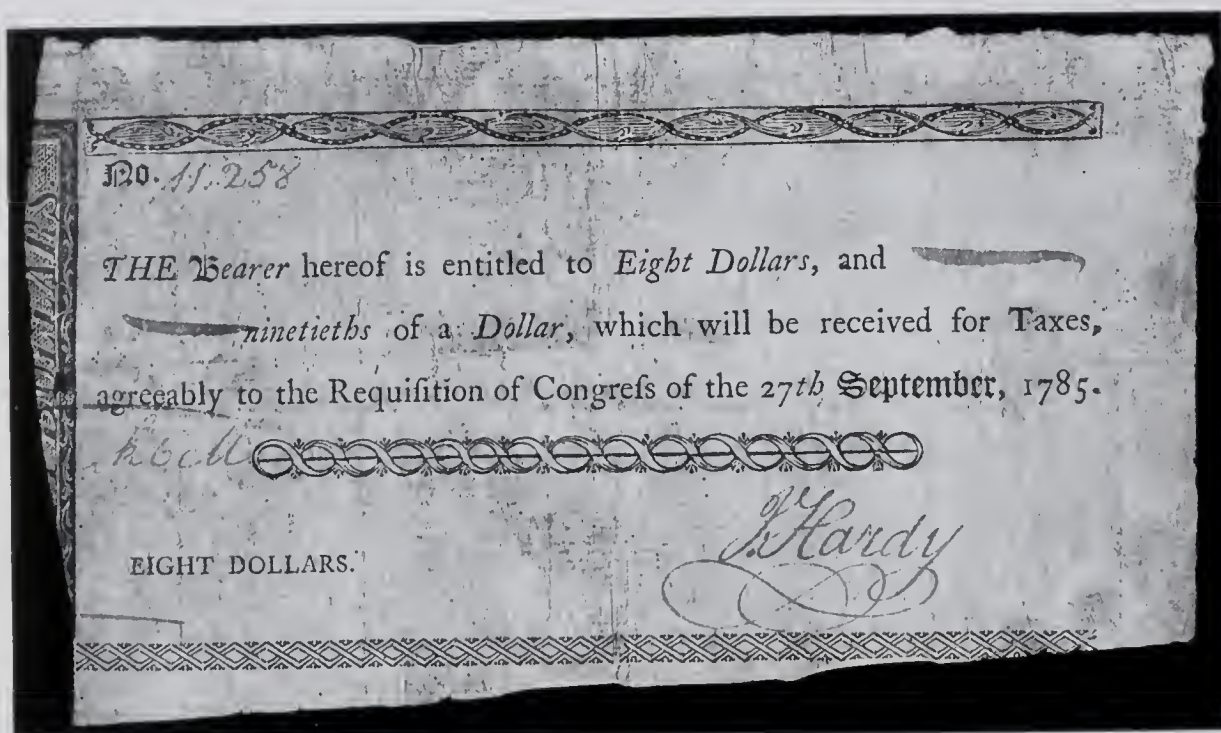 No. 11.258
THE Bearer hereof is entitled to Eight Dollars, and
ninetieths of a Dollar, which will be received for Taxes,
agreeably to the Requiſition of Congreſs of the 27th September, 1785.
J Hardy
EIGHT DOLLARS.